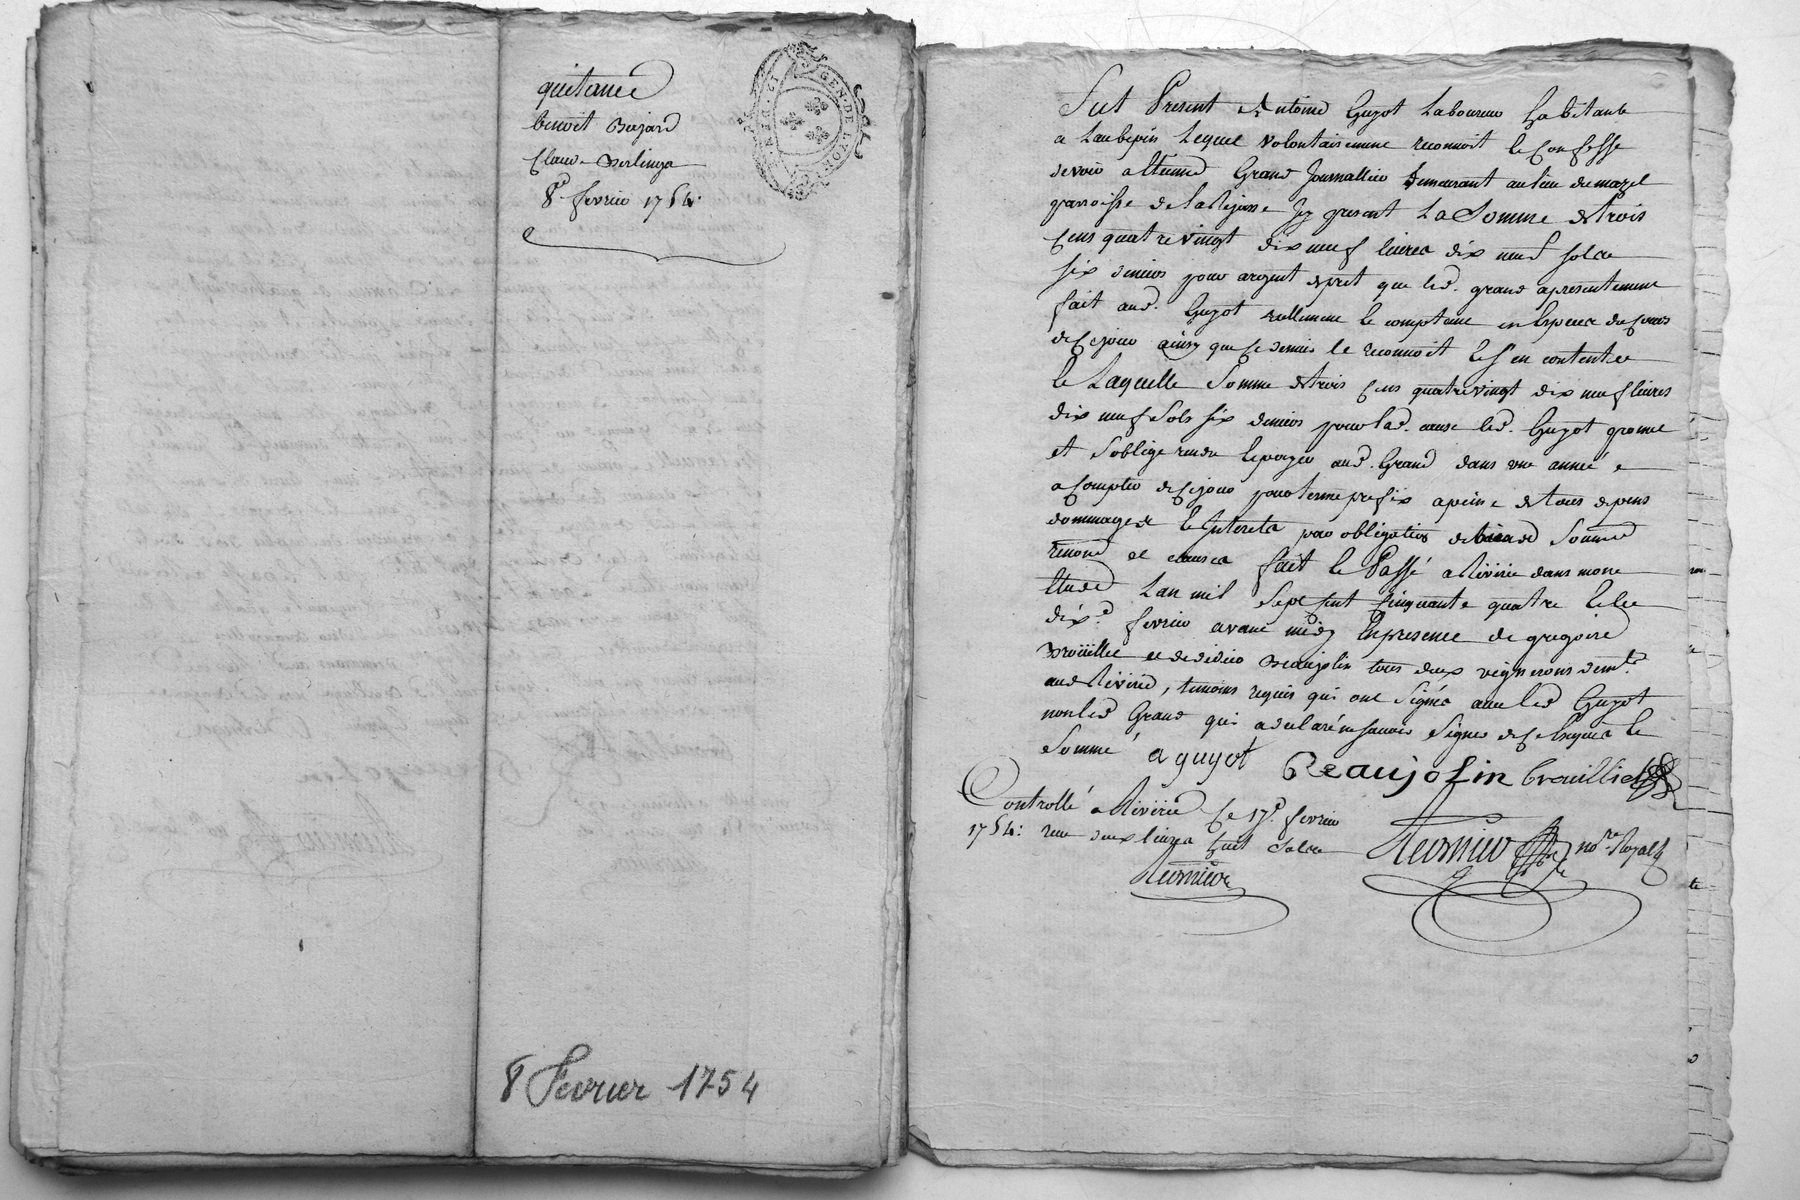 quitance
benoit Bujard
Claude
8e fevrier 1754.
GEN. DE LYON
8 Fevrier 1754
Fut Present Antoine Guyot Laboureur habitant
a Laubepin Lequel volontairement reconnoit & confesse
devoir a Etienne Grand Journallier demeurant au lieu de mazel
parroisse de Larajasse Jcy present La Somme de trois
Cens quatre vingt dix neuf livres dix neuf sols
six deniers pour argent de pret que led. grand a presentement
fait aud. Guyot reellement & comptant en Especes du Cours
de Ce jour ainsy que Ce dernier le reconnoit & s'en contente
& Laquelle Somme de trois Cens quatre vingt dix neuf livres
dix neuf Sols six deniers pour lad. cause led. Guyot promet
et S'oblige rendre & payer aud. Grand dans une année
a Compter de Ce jour pour terme prefix a peine de tous depens
dommages & Interets par obligation de Somme
renond et clauses fait & Passé a Riverie dans mon
Etude L'an mil Sept Cent Cinquante quatre & le
dix.e fevrier avant midy En presence de gregoire
Brouillet et de didier Beaujolin tous deux vignerons demt.
aud Riverie, temoins requis qui ont Signés avec led Guyot
non led Grand qui a declaré ne Savoir Signer de Ce Enquis &
Sommé a guyot Beaujolin brouilliet
Controllé a Riverie Ce 17e fevrier
1754: receu deux livres huit Sols
nore. Royal